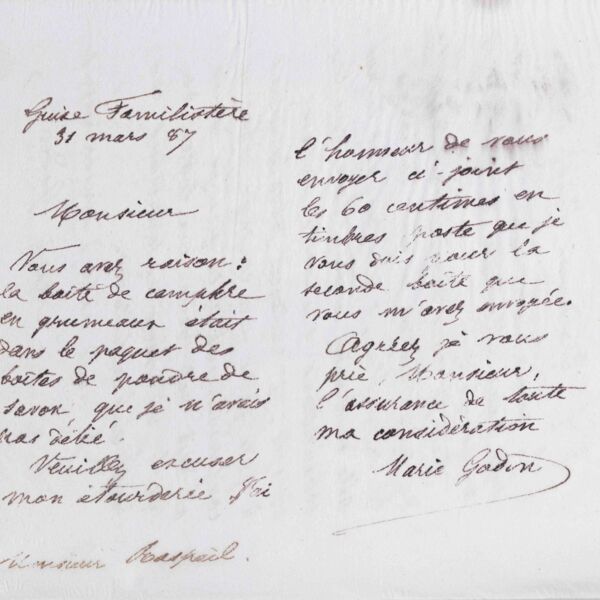 Guise Familistère
31 mars 87
Monsieur
Vous avez raison :
la boîte de camphre
en grumeaux était
dans le paquet des
boîtes de poudre de
savon, que je n'avais
pas délié.
Veuillez excuser
mon étourderie. J'ai
Monsieur Raspail.
l'honneur de vous
envoyer ci-joint
les 60 centimes en
timbres poste que je
vous dois pour la
seconde boîte que
vous m'avez envoyée.
Agréez je vous
prie, Monsieur,
l'assurance de toute
ma considération
Marie Godin